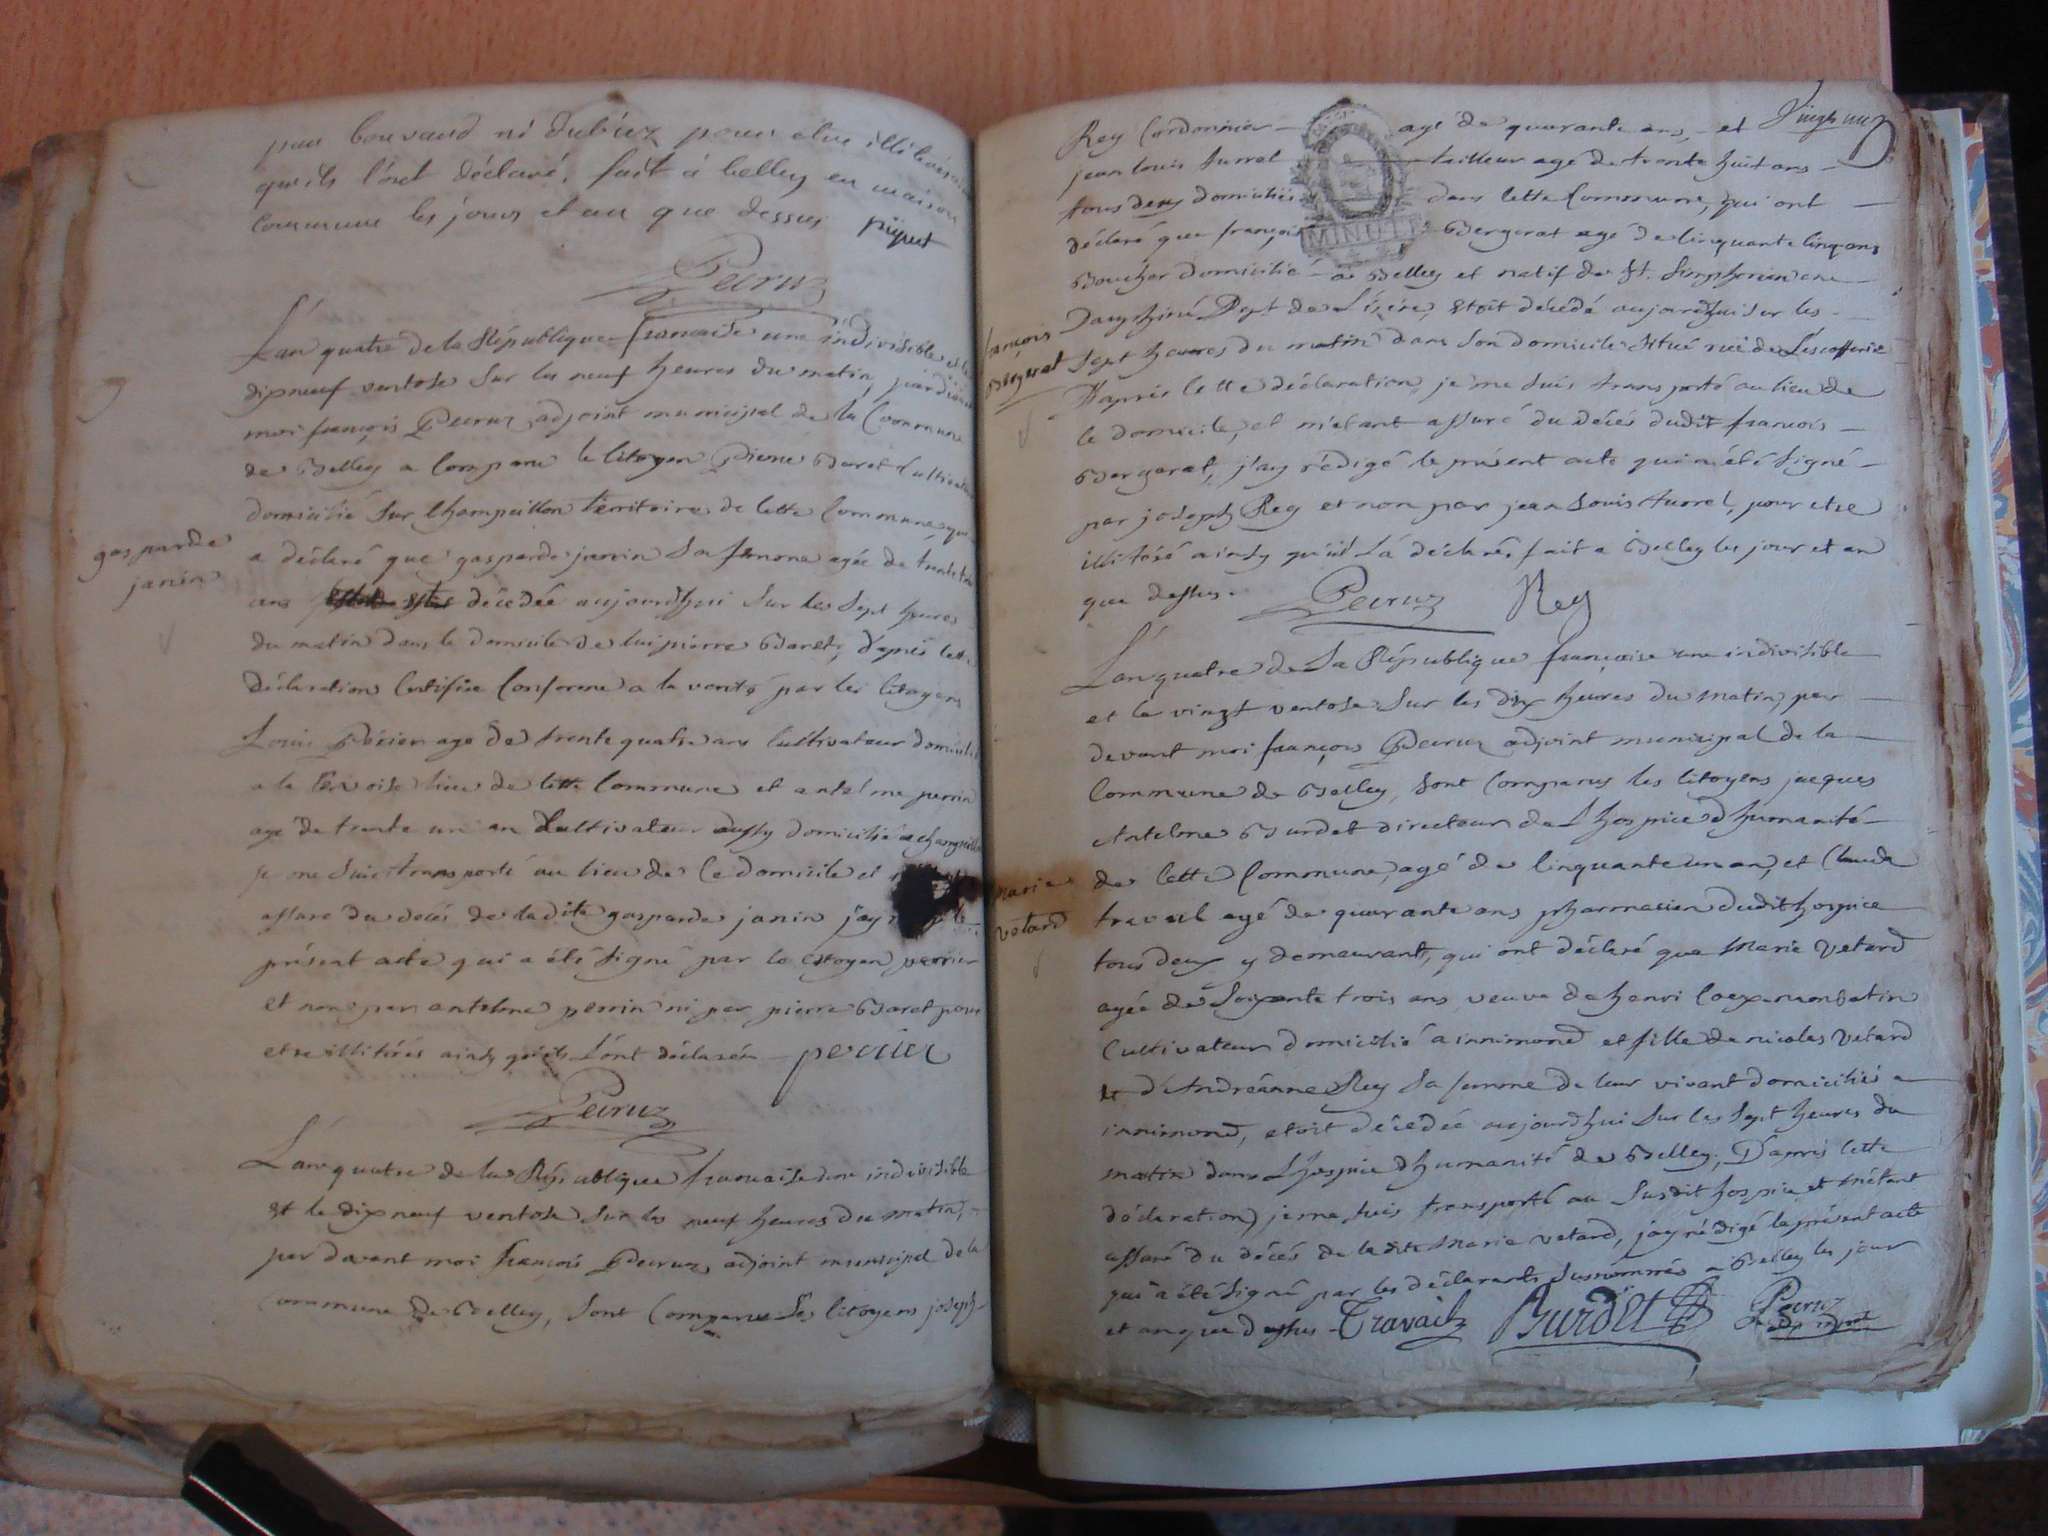 par bouvard ni dubiez pour etre illiterés
qu'ils l'ont déclaré, fait à belley en maison
commune les jours et an que dessus piquet
Peeruz
L'an quatre de la République francaise une indivisible et le
dixneuf ventose sur les neuf heures du matin, pardevant
moi françois Peeruz adjoint municipal de la Commune
de Belley a Comparu le Citoyen Pierre Baret Cultivateur
domicilié sur Champeillon territoire de cette Commune, qui
a déclaré que gasparde janin sa femme agée de trente trois
ans décedée aujourdhui sur les sept heures
du matin dans le domicile de lui pierre Baret, d'aprés cette
déclaration Certifiée Conforme a la verité par les Citoyens
Louis Périer age de trente quatre ans Cultivateur domicilié
a la lieu de cette Commune et antelme perrin
agé de trente un an Cultivateur aussy domicilié a
je me suis transporté au lieu de ce domicile et
assuré du decés de ladite gasparde janin j'ay le
présent acte qui a été signé par le Citoyen perrier
et non par antelme perrin ni par pierre Baret pour
etre illitérés ainsy qu'ils l'ont déclaré perrier
Peeruz
L'an quatre de la République francaise une indivisible
et le dixneuf ventose sur les neuf heures du matin,
par davant moi françois Peeruz adjoint municipal de la
commune de Belley, sont Comparu Les Citoyens joseph
gasparde
janin
Vingt un
Rey Cordonnier agé de quarante ans, et
jean louis turrel tailleur agé de trente huit ans
tous deux domiciliés dans cette Commune, qui ont
déclaré que françois Bergerat agé de Cinquante Cinq ans
Boucher domicilié a Belley et natif de St. Simphorien en
Dauphiné Dept de L'isère, etoit décédé aujourdhui sur les
sept heures du matin dans son domicile situé rue de
D'apres cette déclaration, je me suis transporté au lieu de
ce domicile, et m'etant assuré du décés dudit francois
Bergerat, j'ay rédigé le présent acte qui a été signé
par joseph Rey et non par jean Louis turrel, pour etre
illitéré ainsy qu'il l'a déclaré, fait a Belley les jour et an
que dessus. Peeruz Rey
MINUTE
françois
Bergerat
L'an quatre de La République françoise une indivisible
et le vingt ventose sur les dix heures du matin, par
devant moi françois Peeruz adjoint municipal de la
Commune de Belley, sont Comparus les Citoyens jacques
Antelme Burdet directeur de L'hospice d'humanité
de Cette Commune, agé de Cinquante un an, et Claude
travail agé de quarante ans pharmacien dudit hospice
tous deux y demeurant, qui ont déclaré que Marie Vetard
agée de soixante trois ans, veuve de henri
Cultivateur domicilié a innimond et fille de nicolas Vetard
et d'Andréanne Rey sa femme de leur vivant domiciliés a
innimond, etoit décedée aujourdhui sur les sept heures du
matin dans L'hospice d'humanité de Belley, D'aprés cette
déclaration, je me suis transporté au susdit hospice, et m'étant
assuré du décés de la dite Marie vetard, j'ay rédigé le présent acte
qui a été signé par les déclarants susnommés a Belley les jour
et an que dessus - Travail Burdet Peeruz
marie
vetard